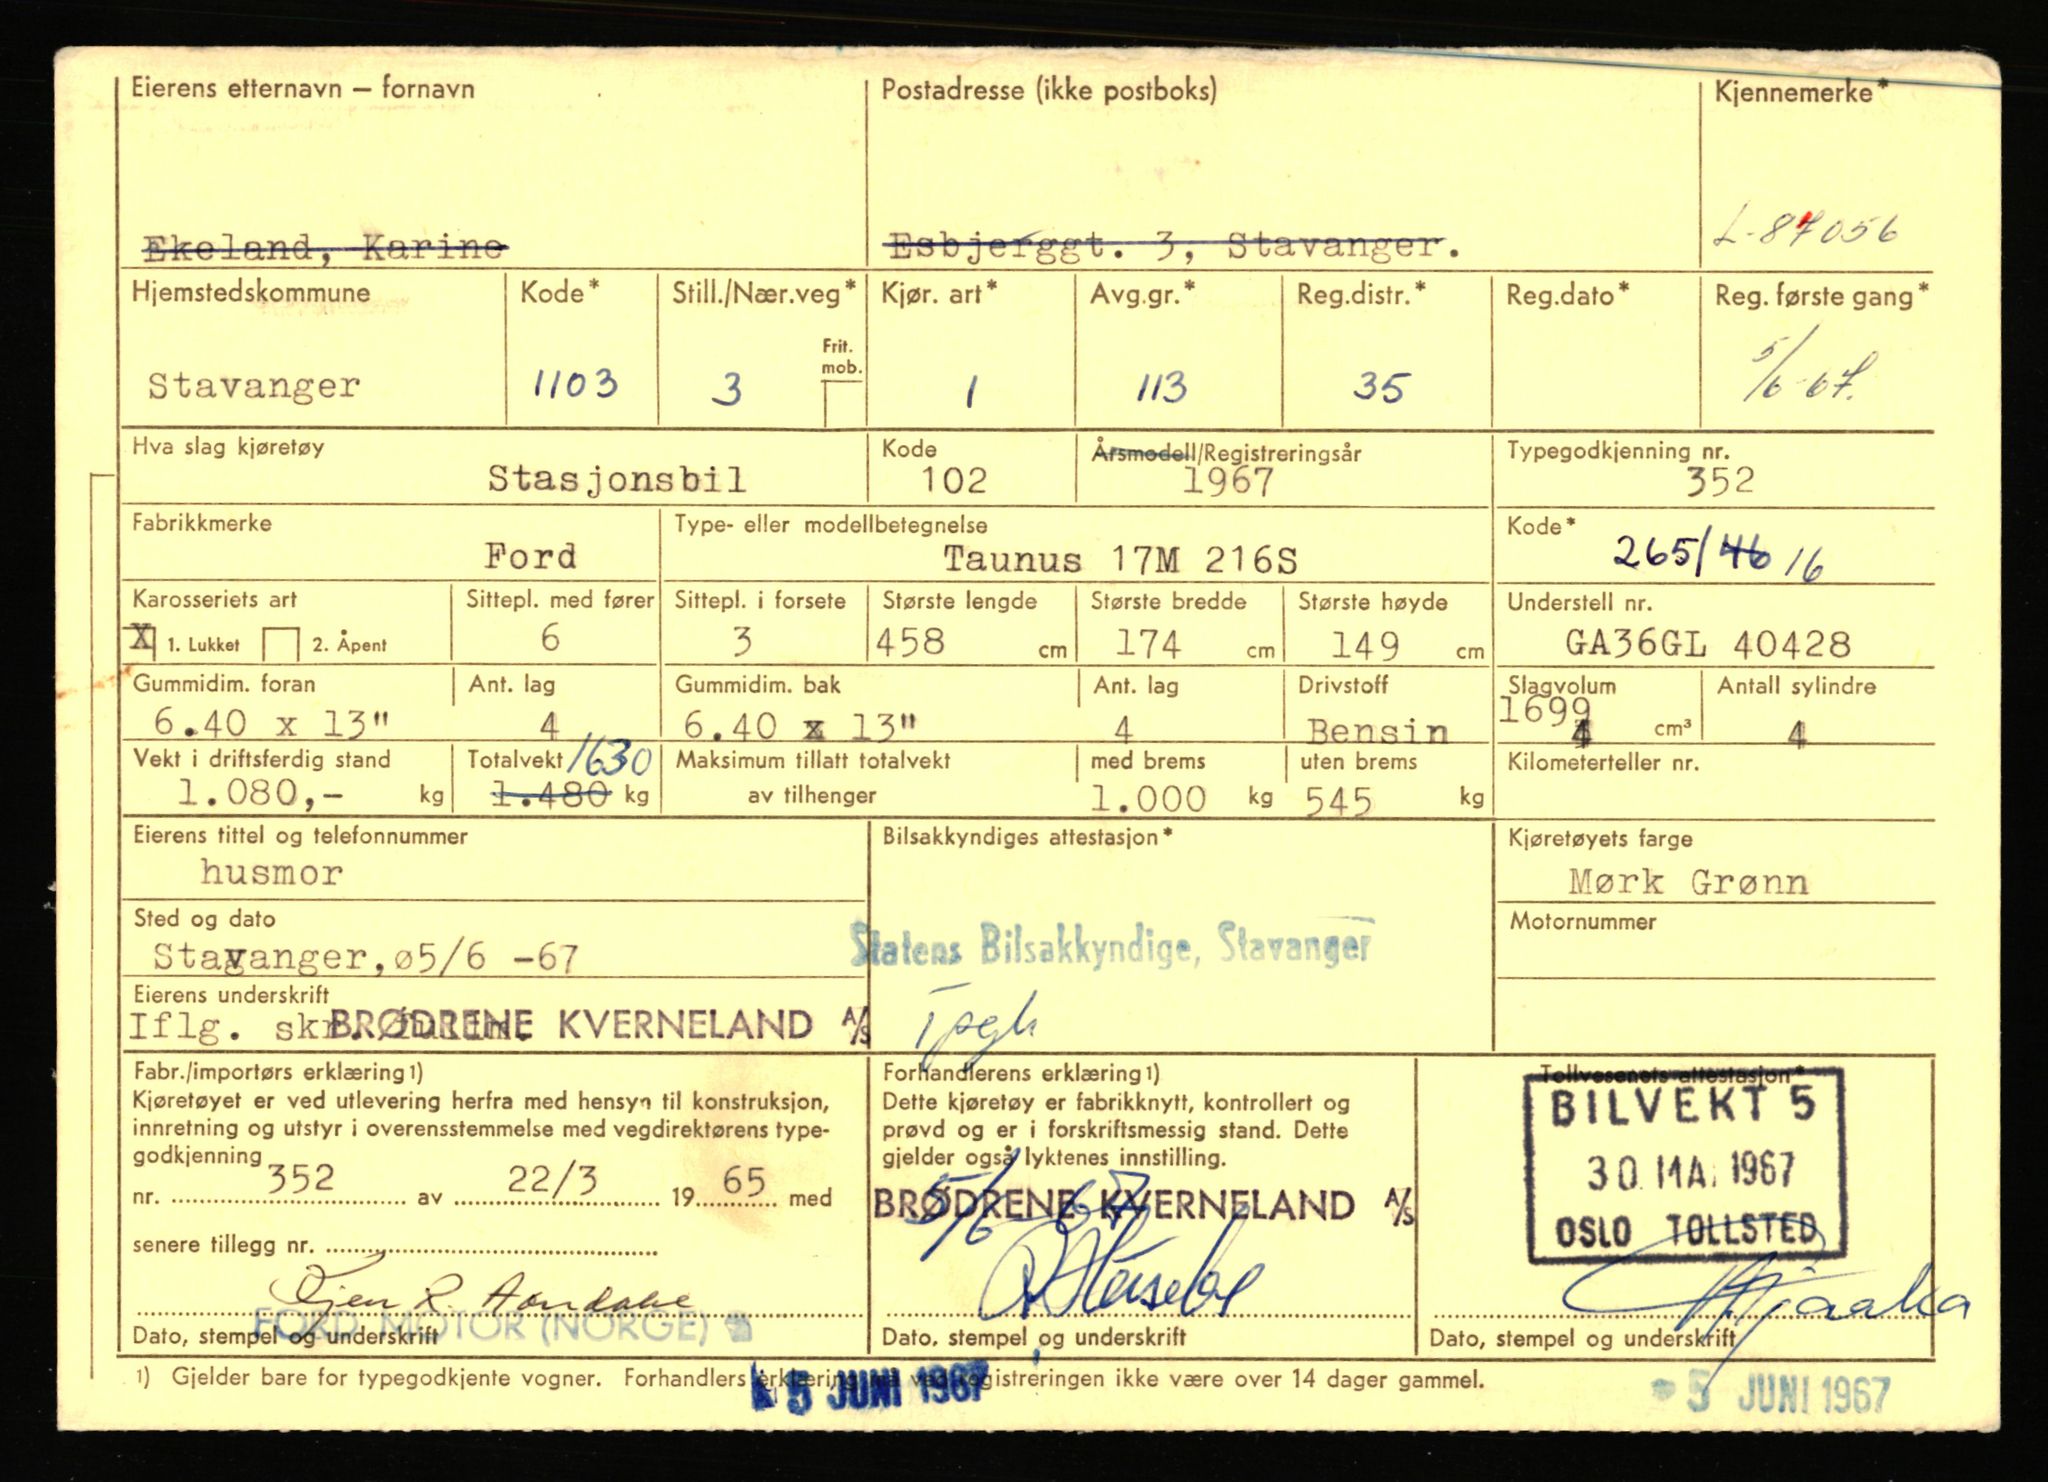 Eierens etternavn – fornavn Postadresse (ikke postboks) Kjennemerke*
Ekeland, Karine Esbjerggt. 3, Stavanger. L-87056
Hjemstedskommune Kode* Still./Nær.veg* Kjør. art* Avg.gr.* Reg.distr.* Reg.dato* Reg. første gang*
Frit. mob.
Stavanger 1103 3 1 113 35 5/6-67.
Hva slag kjøretøy Kode Årsmodell/Registreringsår Typegodkjenning nr.
Stasjonsbil 102 1967 352
Fabrikkmerke Type- eller modellbetegnelse Kode*
Ford Taunus 17M 216S 265/46 16
Karosseriets art Sittepl. med fører Sittepl. i forsete Største lengde Største bredde Største høyde Understell nr.
X 1. Lukket 2. Åpent 6 3 458 cm 174 cm 149 cm GA36GL 40428
Gummidim. foran Ant. lag Gummidim. bak Ant. lag Drivstoff Slagvolum Antall sylindre
6.40 x 13" 4 6.40 x 13" 4 Bensin 1699 cm³ 4
Vekt i driftsferdig stand Totalvekt 1630 Maksimum tillatt totalvekt med brems uten brems Kilometerteller nr.
1.080,- kg 1.480 kg av tilhenger 1.000 kg 545 kg
Eierens tittel og telefonnummer Bilsakkyndiges attestasjon* Kjøretøyets farge
husmor Mørk Grønn
Sted og dato Motornummer
Stavanger, ø5/6 -67 Statens Bilsakkyndige, Stavanger
Eierens underskrift
Iflg. skr. BRØDRENE KVERNELAND A/S
Fabr./importørs erklæring1) Forhandlerens erklæring1) Tollvesenets attestasjon*
Kjøretøyet er ved utlevering herfra med hensyn til konstruksjon, Dette kjøretøy er fabrikknytt, kontrollert og BILVEKT 5
innretning og utstyr i overensstemmelse med vegdirektørens type- prøvd og er i forskriftsmessig stand. Dette
godkjenning gjelder også lyktenes innstilling. 30 MA. 1967
nr. 352 av 22/3 1965 med 5/6-67 BRØDRENE KVERNELAND A/S
OSLO TOLLSTED
senere tillegg nr.
FORD MOTOR (NORGE)
Dato, stempel og underskrift Dato, stempel og underskrift Dato, stempel og underskrift
1) Gjelder bare for typegodkjente vogner. Forhandlers erklæring må ved registreringen ikke være over 14 dager gammel.
5 JUNI 1967 - 5 JUNI 1967